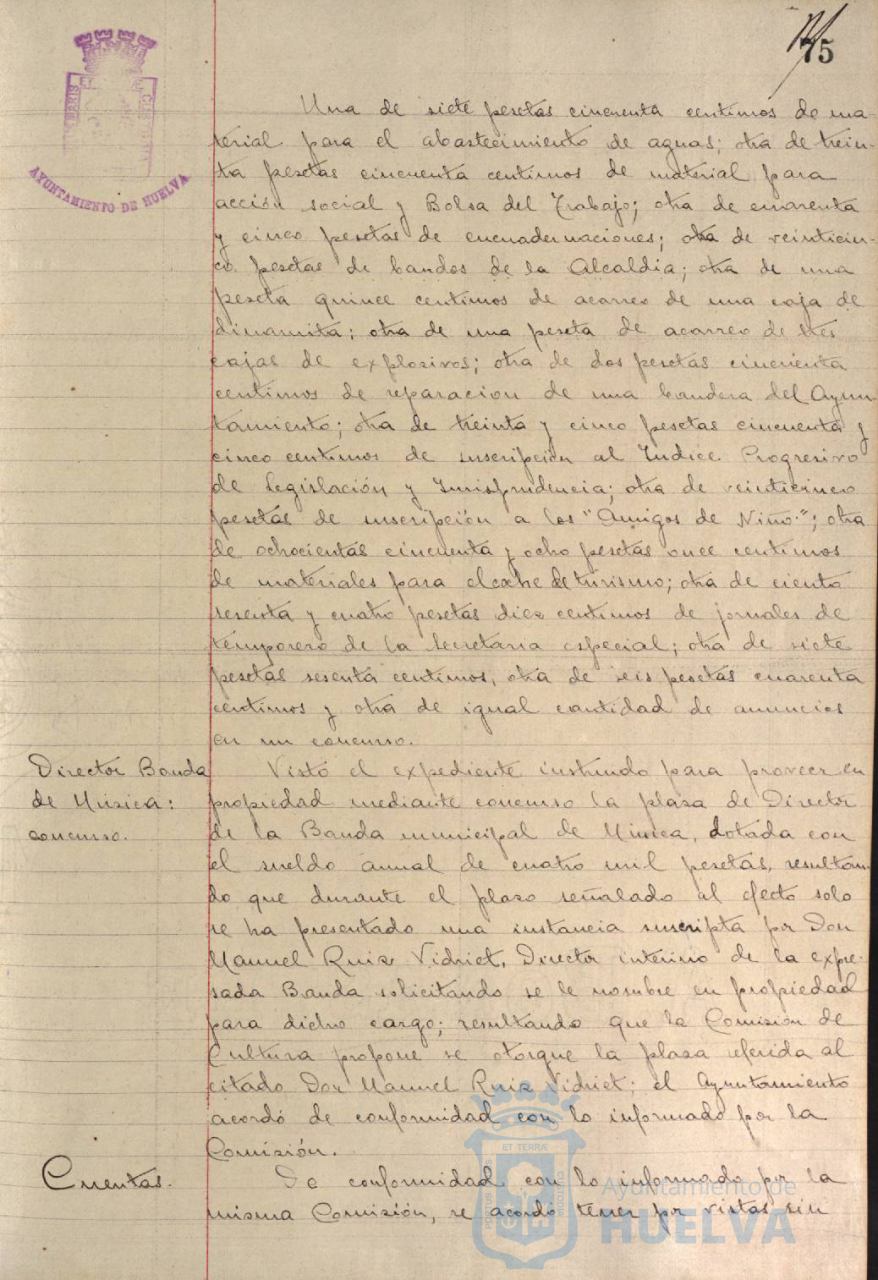 75
AYUNTAMIENTO DE HUELVA
Una de siete pesetas cincuenta centimos de ma-
terial para el abastecimiento de aguas; otra de trein-
ta pesetas cincuenta centimos de material para
acción social y Bolsa del Trabajo; otra de cuarenta
y cinco pesetas de encuadernaciones; otra de veinticin-
co pesetas de bandos de la Alcaldia; otra de una
peseta quince centimos de acarreo de una caja de
dinamita; otra de una peseta de acarreo de tres
cajas de explosivos; otra de dos pesetas cincuenta
centimos de reparacion de una bandera del Ayun-
tamiento; otra de treinta y cinco pesetas cincuenta y
cinco centimos de suscripción al Indice Progresivo
de Legislación y Jurisprudencia; otra de veinticinco
pesetas de suscripción a los "Amigos de Niño"; otra
de ochocientas cincuenta y ocho pesetas once centimos
de materiales para el coche de turismo; otra de ciento
sesenta y cuatro pesetas diez centimos de jornales de
temporero de la Secretaria especial; otra de siete
pesetas sesenta centimos, otra de seis pesetas cuarenta
centimos y otra de igual cantidad de anuncios
en un concurso.
Director Banda
de Música:
concurso.
Visto el expediente instruido para proveer en
propiedad mediante concurso la plaza de Director
de la Banda municipal de Música, dotada con
el sueldo anual de cuatro mil pesetas, resultan-
do que durante el plazo señalado al efecto solo
se ha presentado una instancia suscripta por Don
Manuel Ruiz Vidriet, Director interino de la expre-
sada Banda solicitando se le nombre en propiedad
para dicho cargo; resultando que la Comisión de
Cultura propone se otorgue la plaza referida al
citado Don Manuel Ruiz Vidriet; el Ayuntamiento
acordó de conformidad con lo informado por la
Comisión.
Cuentas.
De conformidad con lo informado por la
misma Comisión, se acordó tener por vistas sin
Ayuntamiento de
HUELVA